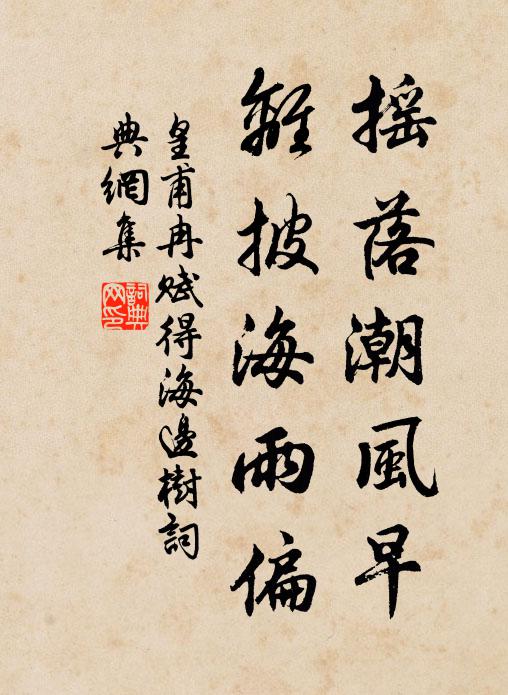 搖落潮風早
離披海雨偏
皇甫冉賦得海邊樹詞
典網集
詞典網印